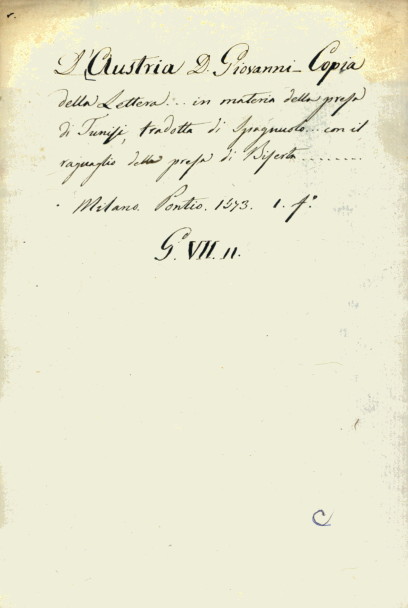 D'Austria D. Giovanni - Copia
della Lettera... in materia della presa
di Tunisi, tradotta di Spagnuolo... con il
raguaglio della presa di Biserta........
Milano. Pontio. 1573. 1. f.º
G.º VII. 11.